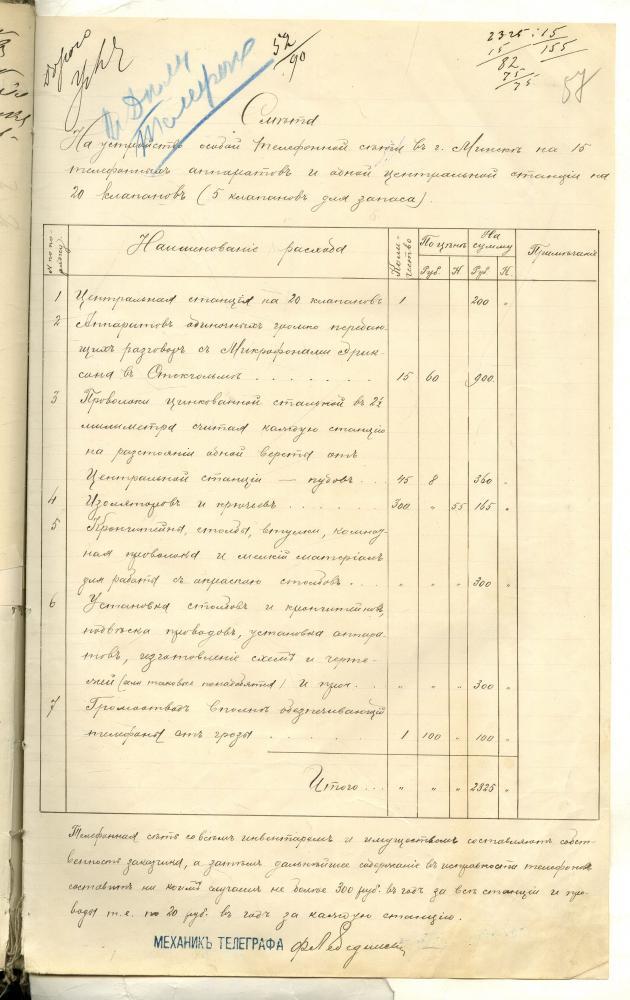 52/90
2325:15
15 / 155
82
75
75
57
Смѣта
На устройство особой телефонной сѣти въ г. Минскѣ на 15
телефонныхъ аппаратовъ и одной центральной станціи на
20 клапановъ (5 клапановъ для запаса).
№ по порядку Наименованіе расхода Количество По цѣнѣ На сумму Примѣчаніе
Руб. К Руб К.
1 Центральная станція на 20 клапановъ 1 200 "
2 Аппаратовъ одиночныхъ громко передаю-
щихъ разговоръ съ Микрофонами Эрик-
сона въ Стокгольмѣ . . . . . . 15 60 900.
3 Проволоки цинкованной стальной въ 2½
милиметра считая каждую станцію
на разстояніи одной версты отъ
Центральной станціи — пудовъ . . . 45 8 360 "
4 Изоляторовъ и крючьевъ . . . . . . 300 " 55 165 "
5 Кронштейны, столбы, втулки, комнат-
ная проволока и мелкій матеріалъ
для работъ съ окраскою столбовъ . . . " " 300 "
6 Установка столбовъ и кронштейновъ,
подвѣска проводовъ, установка аппара-
товъ, изготовленіе схемъ и черте-
жей (если таковые понадобятся) и проч. . . " " " 300 "
7 Громоотводъ вполнѣ обезпечивающій
телефоны отъ грозы . . . . . . 1 100 " 100 "
Итого . . . " " " 2325 "
Телефонная сѣть со всѣмъ инвентаремъ и имуществомъ составляютъ собст-
венность заказчика, а затѣмъ дальнѣйшее содержаніе въ исправности телефона
составитъ ни коимъ случаемъ не болѣе 300 руб. въ годъ за всѣ станціи и про-
воды т.е. по 20 руб. въ годъ за каждую станцію.
МЕХАНИКЪ ТЕЛЕГРАФА